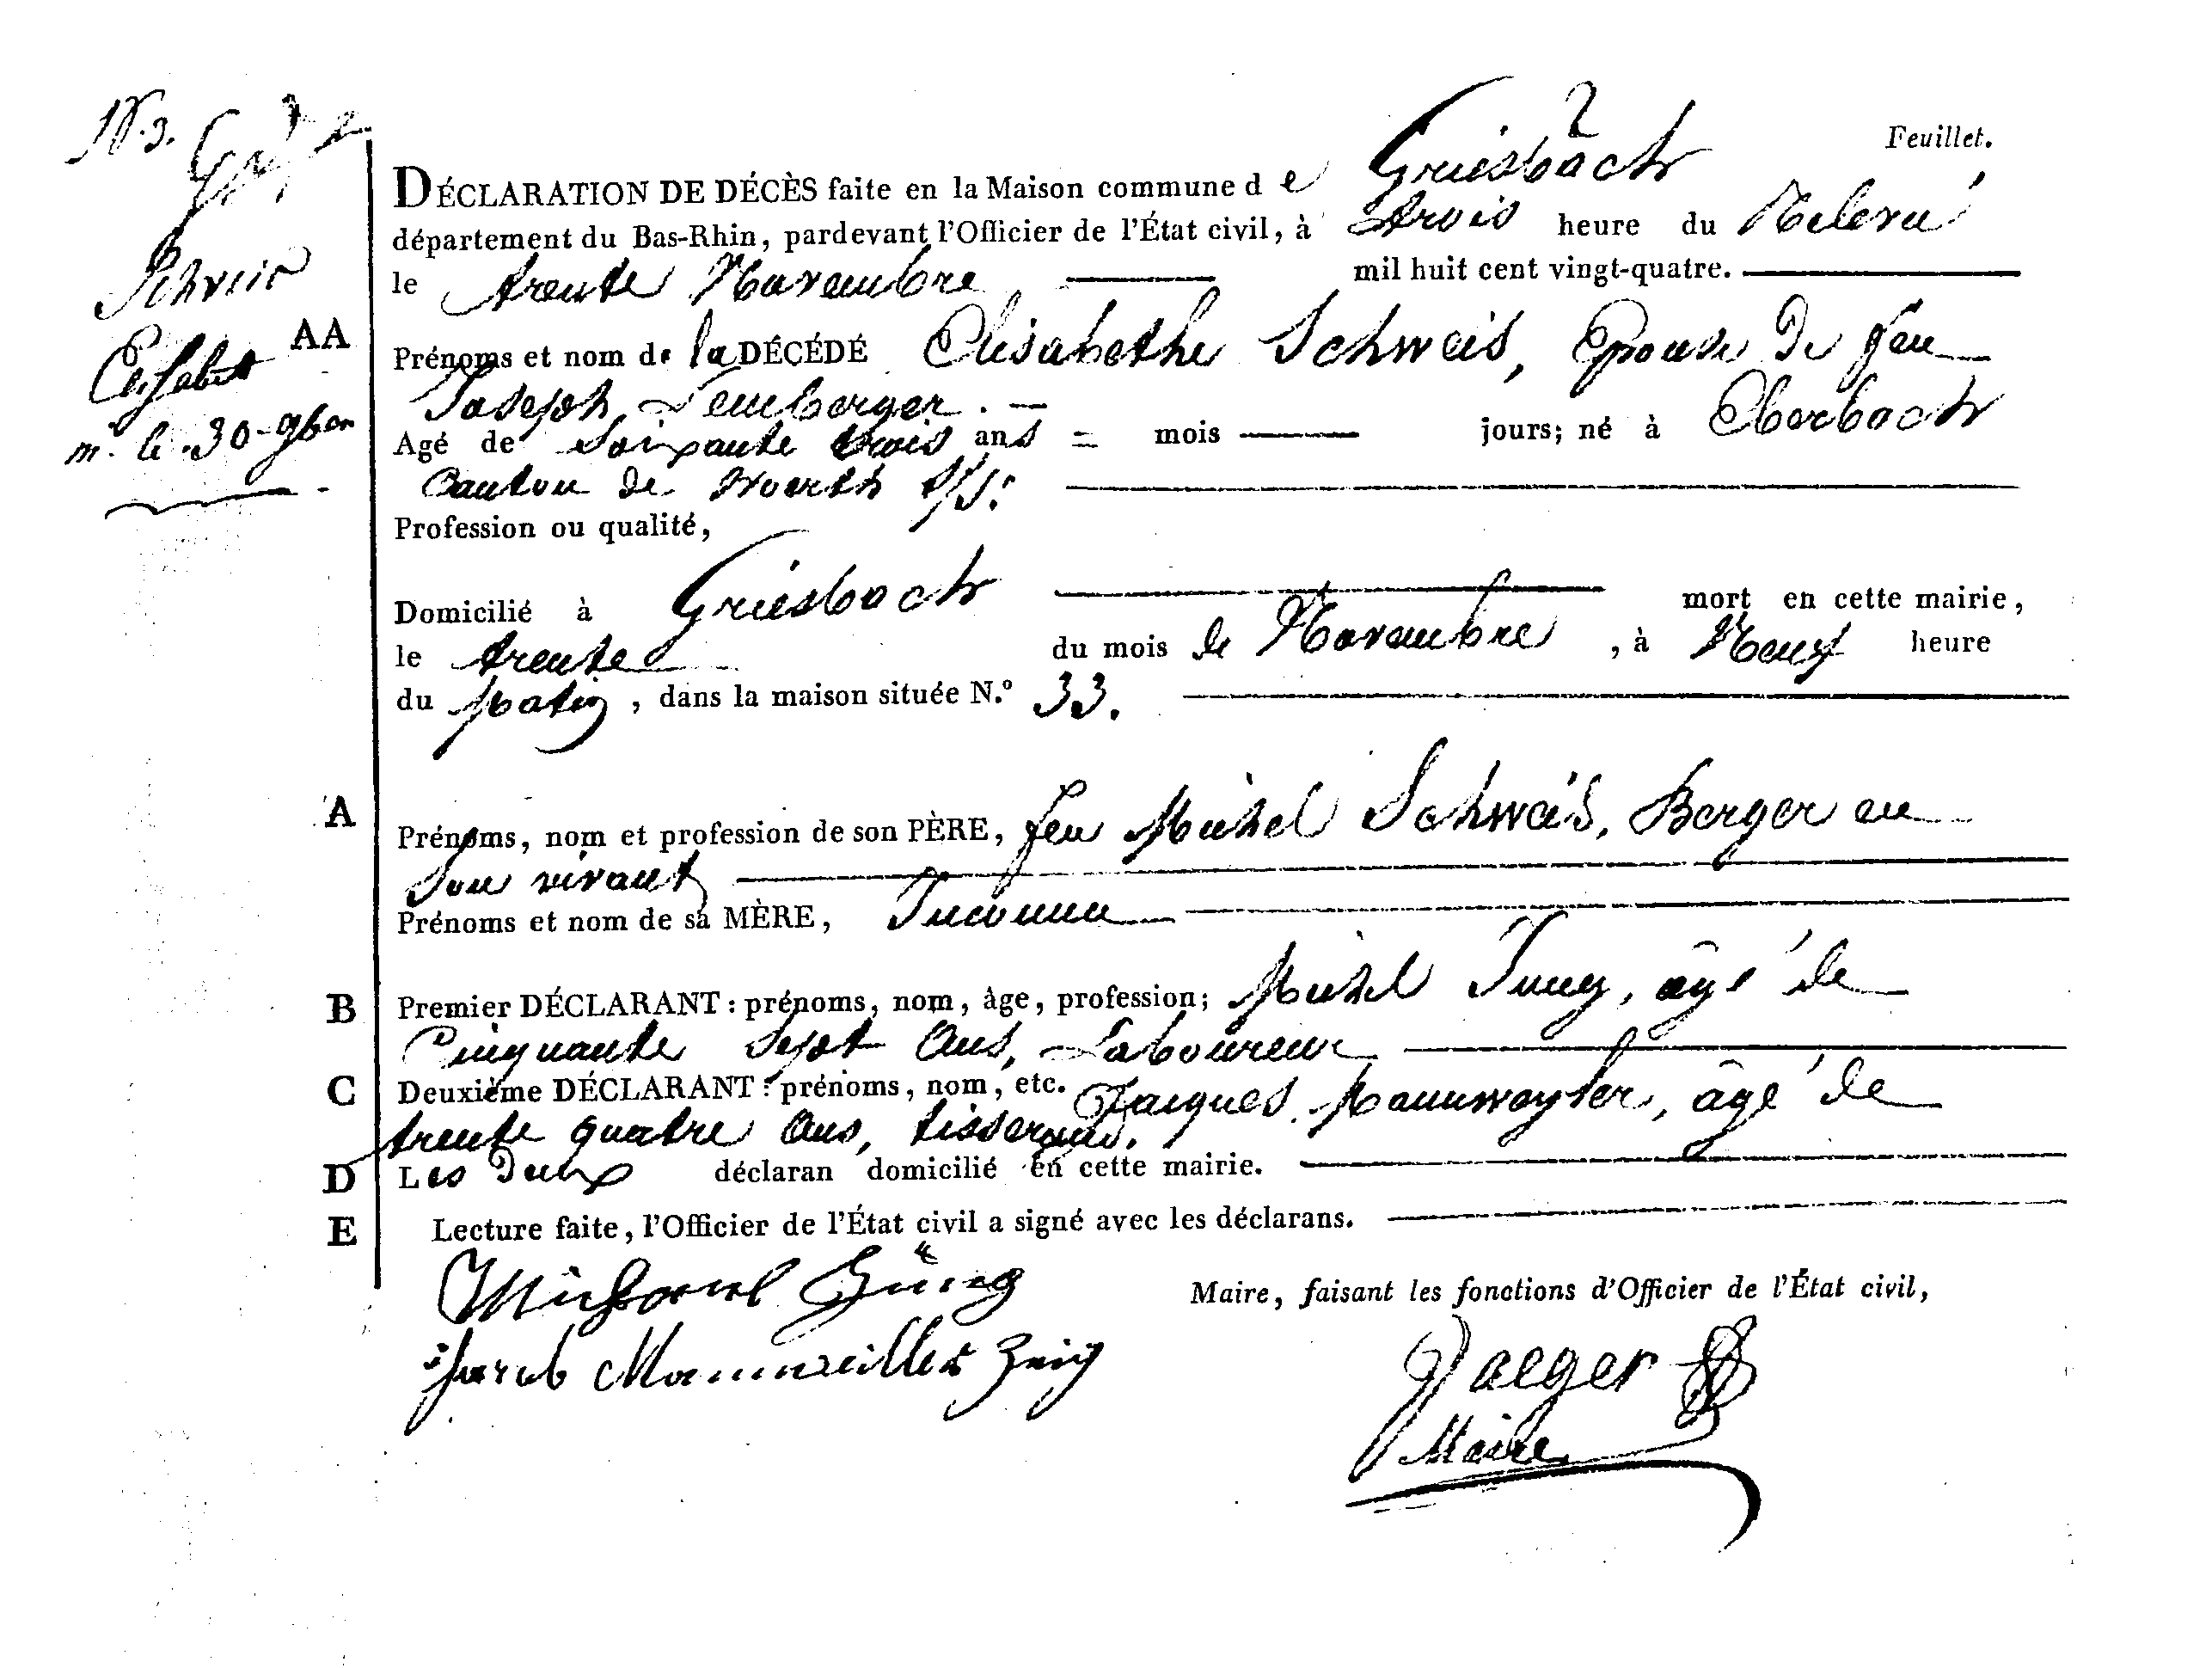 N.° 3.
2
Feuillet.
DÉCLARATION DE DÉCÈS faite en la Maison commune de Griesbach
département du Bas-Rhin, pardevant l'Officier de l'État civil, à trois heure du Relevé
le trente Novembre mil huit cent vingt-quatre.
Schweis
Elisabeth
m. le 30 9bre
AA
Prénoms et nom de la DÉCÉDÉ Elisabethe Schweis, Epouse de feu
Joseph Leuberger.
Agé de Soixante trois ans = mois jours; né à Eberbach
Canton de Woerth s/S.
Profession ou qualité,
Domicilié à Griesbach mort en cette mairie,
le trente du mois de Novembre, à Neuf heure
du Matin, dans la maison située N.° 33.
A
Prénoms, nom et profession de son PÈRE, feu Michel Schweis, Berger en
Son vivant
Prénoms et nom de sa MÈRE, Inconnu
B
Premier DÉCLARANT : prénoms, nom, âge, profession; Michel Jung, âgé de
Cinquante Sept Ans, Laboureur
C
Deuxième DÉCLARANT : prénoms, nom, etc. Jacques Mannweyler, âgé de
trente quatre Ans, tisserand.
D
Les Deux déclaran domicilié en cette mairie.
E
Lecture faite, l'Officier de l'État civil a signé avec les déclarans.
Michael Jüng
Maire, faisant les fonctions d'Officier de l'État civil,
Jacob Mannweiller
Jaeger
Maire